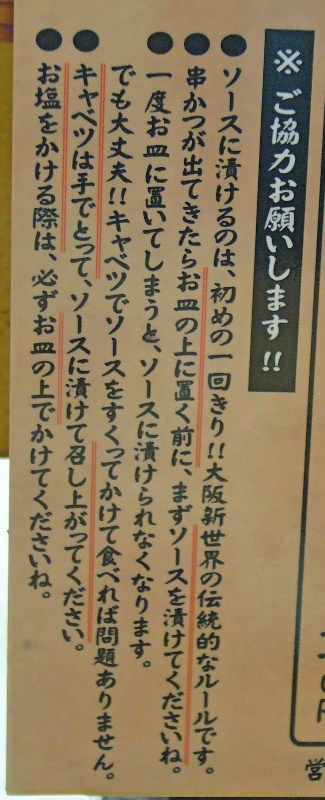 ※ご協力お願いします!!
●ソースに漬けるのは、初めの一回きり!!大阪新世界の伝統的なルールです。
●串かつが出てきたらお皿の上に置く前に、まずソースを漬けてくださいね。
●一度お皿に置いてしまうと、ソースに漬けられなくなります。
でも大丈夫!!キャベツでソースをすくってかけて食べれば問題ありません。
●キャベツは手でとって、ソースに漬けて召し上がってください。
●お塩をかける際は、必ずお皿の上でかけてくださいね。
営